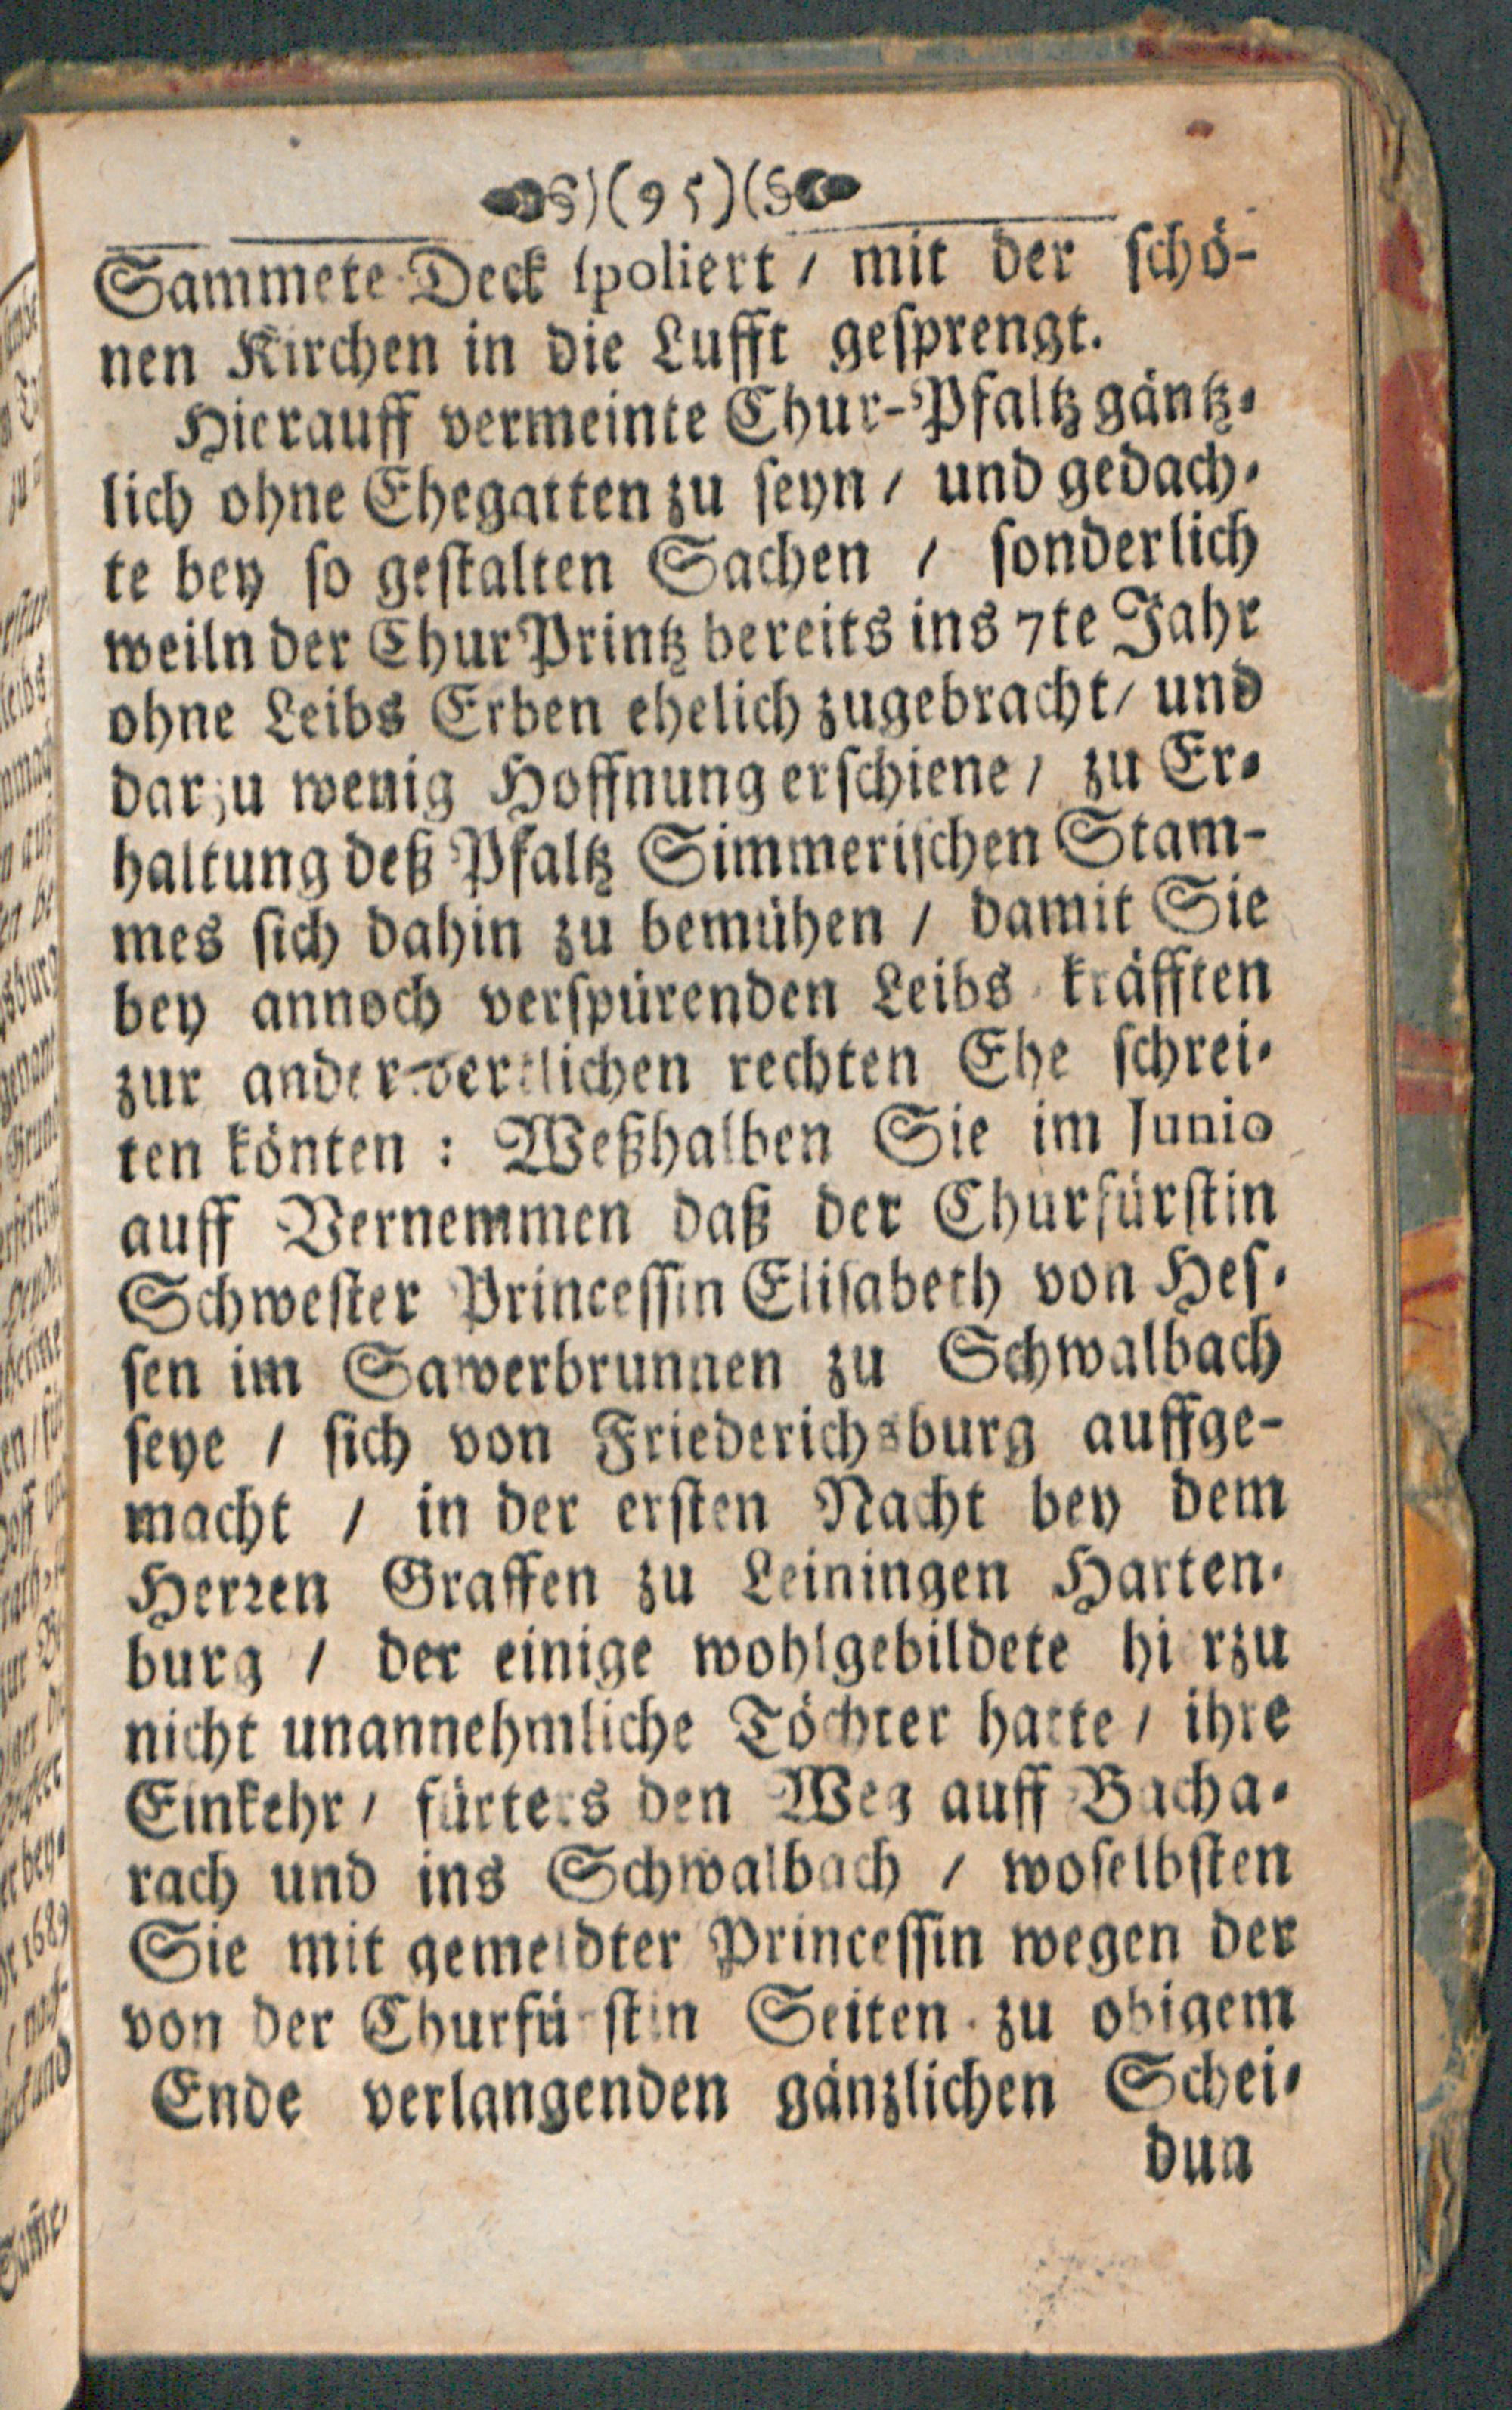 )(95)(
Sammete Deck spoliert / mit der schö-
nen Kirchen in die Lufft gesprengt.
Hierauff vermeinte Chur-Pfaltz gäntz-
lich ohne Ehegatten zu seyn / und gedach-
te bey so gestalten Sachen / sonderlich
weiln der Chur Printz bereits ins 7te Jahr
ohne Leibs Erben ehelich zugebracht / und
darzu wenig Hoffnung erschiene / zu Er-
haltung deß Pfaltz Simmerischen Stam-
mes sich dahin zu bemühen / damit Sie
bey annoch verspürenden Leibs kräfften
zur anderwertlichen rechten Ehe schrei-
ten könten : Weßhalben Sie im Junio
auff Vernemmen daß der Churfürstin
Schwester Princessin Elisabeth von Hes-
sen im Sawerbrunnen zu Schwalbach
seye / sich von Friederichsburg auffge-
macht / in der ersten Nacht bey dem
Herren Graffen zu Leiningen Harten-
burg / der einige wohlgebildete hi rzu
nicht unannehmliche Töchter hatte / ihre
Einkehr / fürters den Weg auff Bacha-
rach und ins Schwalbach / woselbsten
Sie mit gemeldter Princessin wegen der
von der Churfü stin Seiten zu obigem
Ende verlangenden gänzlichen Schei-
dun